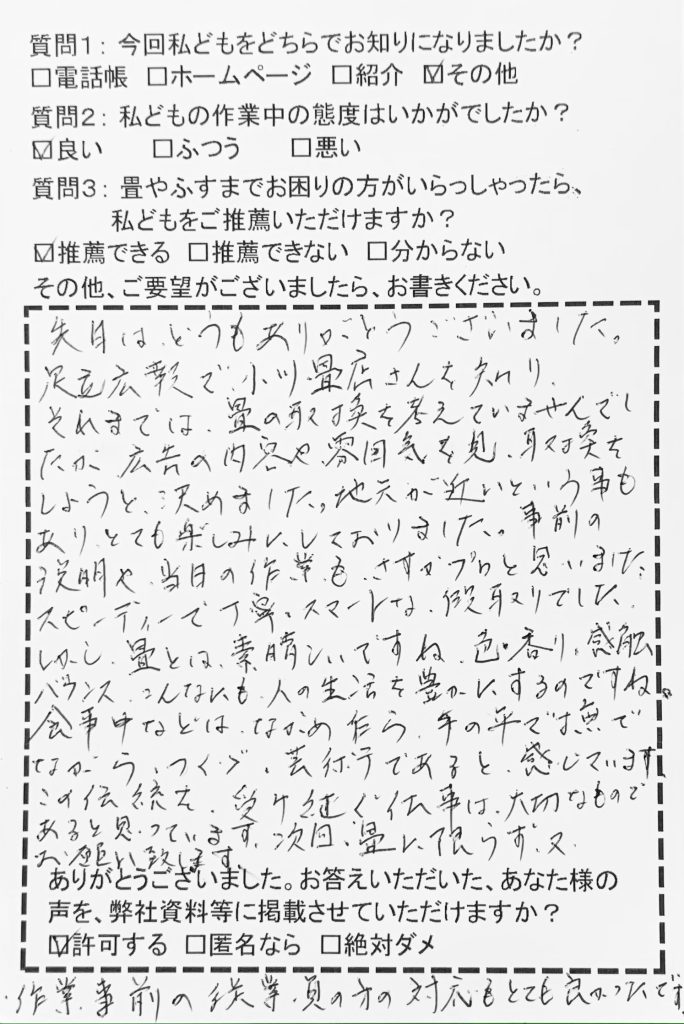 質問1：今回私どもをどちらでお知りになりましたか？
□電話帳 □ホームページ □紹介 ☑その他
質問2：私どもの作業中の態度はいかがでしたか？
☑良い □ふつう □悪い
質問3：畳やふすまでお困りの方がいらっしゃったら、
私どもをご推薦いただけますか？
☑推薦できる □推薦できない □分からない
その他、ご要望がございましたら、お書きください。
先日は、どうもありがとうございました。
足立広報で、小川畳店さんを知り、
それまでは、畳の取り換えを考えていませんでし
たが、広告の内容や、雰囲気を見、取り換えを
しようと、決めました。地元が近いという事も
あり、とても楽しみに、しておりました。事前の
説明や、当日の作業も、さすがプロと思いました。
スピーディーで丁寧。スマートな、段取りでした。
しかし、畳とは、素晴しいですね、色・香り、感触
バランス、こんなにも、人の生活を豊かにするのですね。
食事中などは、ながめ乍ら、手の平で撫で
ながら、つくづく、芸術であると、感じています。
この伝統を、受け継ぐ仕事は、大切なもので
あると思っています。次回、畳に限らず、又、
お願い致します。
ありがとうございました。お答えいただいた、あなた様の
声を、弊社資料等に掲載させていただけますか？
☑許可する □匿名なら □絶対ダメ
・作業、事前の従業員の方の対応もとても良かったです